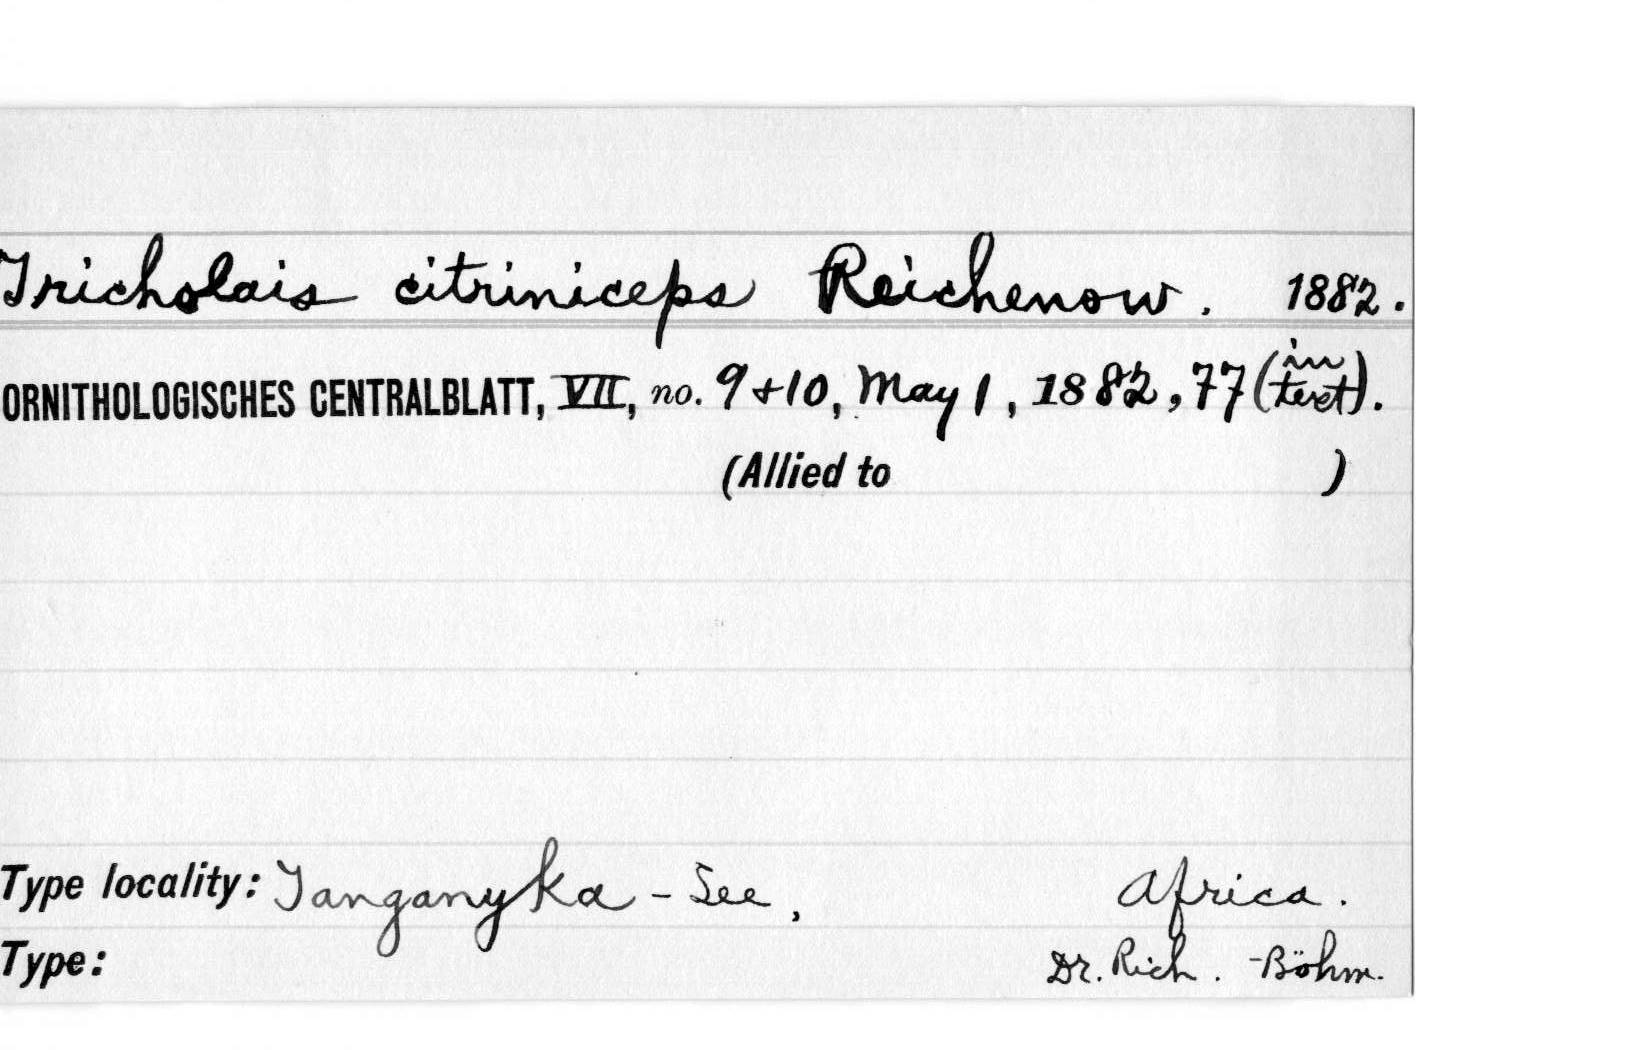 Tricholais citriniceps Reichenow. 1882.
ORNITHOLOGISCHES CENTRALBLATT, VII, no. 9+10, May 1, 1882, 77 (in text).
(Allied to )
Type locality: Tanganyka-See, Africa.
Type: Dr. Rich. Böhm.